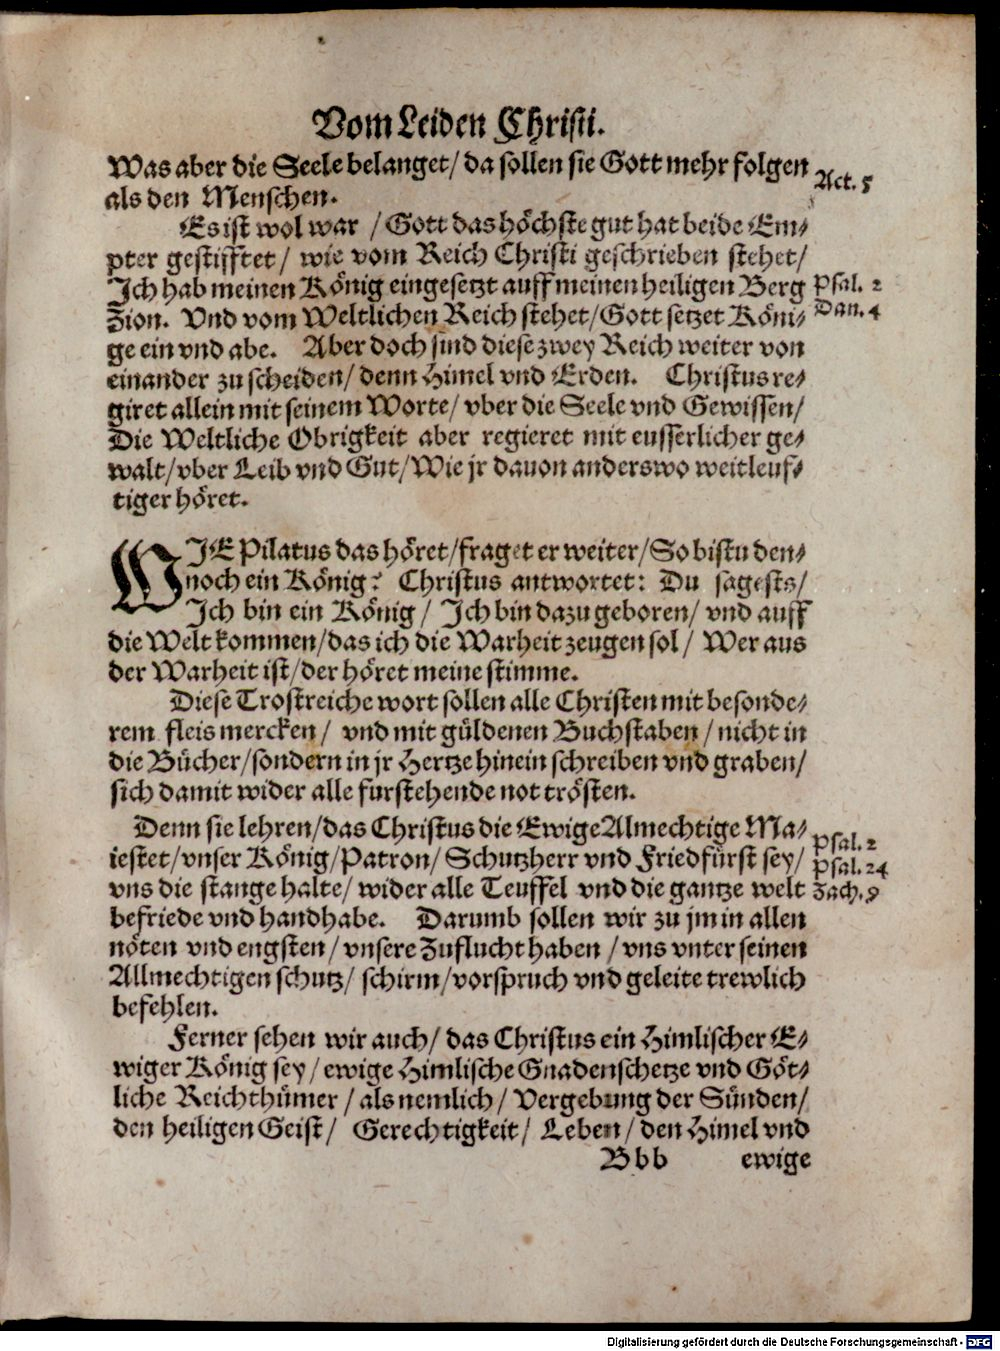 Vom Leiden Christi.
Was aber die Seele belanget/ da sollen sie Gott mehr folgen
als den Menschen.
Act. 5
Es ist wol war / Gott das höchste gut hat beide Em⸗
pter gestifftet/ wie vom Reich Christi geschrieben stehet/
Ich hab meinen König eingesetzt auff meinen heiligen Berg
Psal. 2
Zion. Vnd vom Weltlichen Reich stehet/ Gott setzet Köni⸗
Dan. 4
ge ein vnd abe. Aber doch sind diese zwey Reich weiter von
einander zu scheiden/ denn Himel vnd Erden. Christus re⸗
giret allein mit seinem Worte/ vber die Seele vnd Gewissen/
Die Weltliche Obrigkeit aber regieret mit eusserlicher ge⸗
walt/ vber Leib vnd Gut/ Wie jr dauon anderswo weitleuf⸗
tiger höret.
WIE Pilatus das höret/ fraget er weiter/ So bistu den⸗
noch ein König? Christus antwortet: Du sagests/
Ich bin ein König/ Ich bin dazu geboren/ vnd auff
die Welt kommen/ das ich die Warheit zeugen sol/ Wer aus
der Warheit ist/ der höret meine stimme.
Diese Trostreiche wort sollen alle Christen mit besonde⸗
rem fleis mercken/ vnd mit güldenen Buchstaben / nicht in
die Bücher/ sondern in jr Hertze hinein schreiben vnd graben/
sich damit wider alle furstehende not trösten.
Denn sie lehren/ das Christus die Ewige Almechtige Ma⸗
iestet/ vnser König/ Patron/ Schutzherr vnd Friedfürst sey/
Psal. 2
Psal. 24
vns die stange halte/ wider alle Teuffel vnd die gantze welt
Zach. 9
befriede vnd handhabe. Darumb sollen wir zu jm in allen
nöten vnd engsten/ vnsere Zuflucht haben / vns vnter seinen
Allmechtigen schutz/ schirm/ vorspruch vnd geleite trewlich
befehlen.
Ferner sehen wir auch/ das Christus ein Himlischer E⸗
wiger König sey/ ewige Himlische Gnadenschetze vnd Göt⸗
liche Reichthümer / als nemlich/ Vergebung der Sünden/
den heiligen Geist/ Gerechtigkeit/ Leben/ den Himel vnd
Bbb ewige
Digitalisierung gefördert durch die Deutsche Forschungsgemeinschaft - DFG